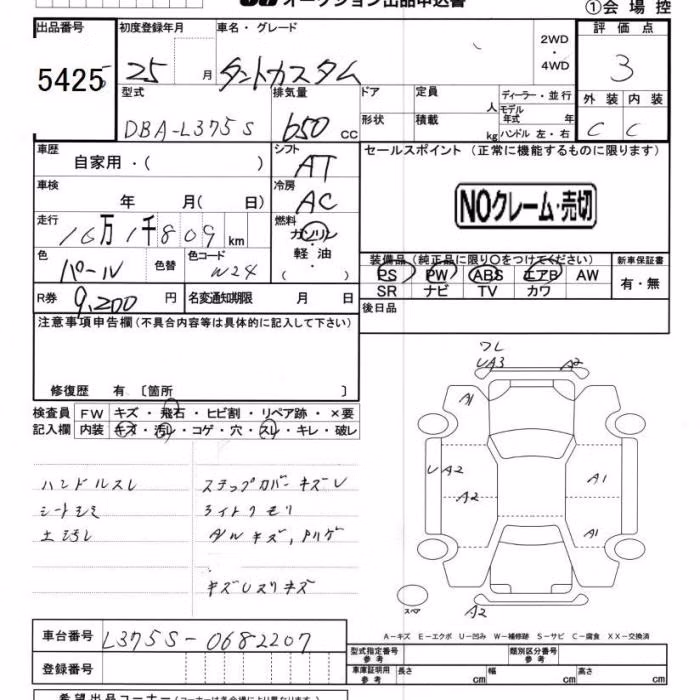 オークション出品申込書
①会場控
出品番号 初度登録年月 車名・グレード 2WD・4WD 評価点
5425 25 月 タントカスタム 3
型式 排気量 ドア 定員 人 ディーラー・並行 外装 内装
DBA-L375S 650 cc 形状 積載 kg モデル年式 年 ハンドル 左・右 C C
車歴 自家用・( ) シフト AT セールスポイント (正常に機能するものに限ります)
車検 年 月( 日) 冷房 AC NOクレーム・売切
走行 16万1千809km 燃料 ガソリン 軽油 ・( )
装備品 (純正品に限り○をつけてください) 新車保証書
色 パール 色替 色コード W24 PS PW ABS エアB AW 有・無
SR ナビ TV カワ
R券 9,200円 名変通知期限 月 日 後日品
注意事項申告欄 (不具合内容等は具体的に記入して下さい)
修復歴 有 〔箇所 〕
検査員 FW キズ・飛石・ヒビ割・リペア跡・×要
記入欄 内装 キズ・汚レ・コゲ・穴・スレ・キレ・破レ
ハンドルスレ ステップカバーキズレ
シートシミ ライトクモリ
土汚レ
ワレ
UA3 A2
A1
UA2 A2 A1
A1
スペア A2
A-キズ E-エクボ U-凹み W-補修跡 S-サビ C-腐食 XX-交換済
車台番号 L375S-0682207 型式指定番号 参考 類別区分番号 参考
登録番号 車庫証明用 参考 長さ cm 幅 cm 高さ cm
希望出品コーナー